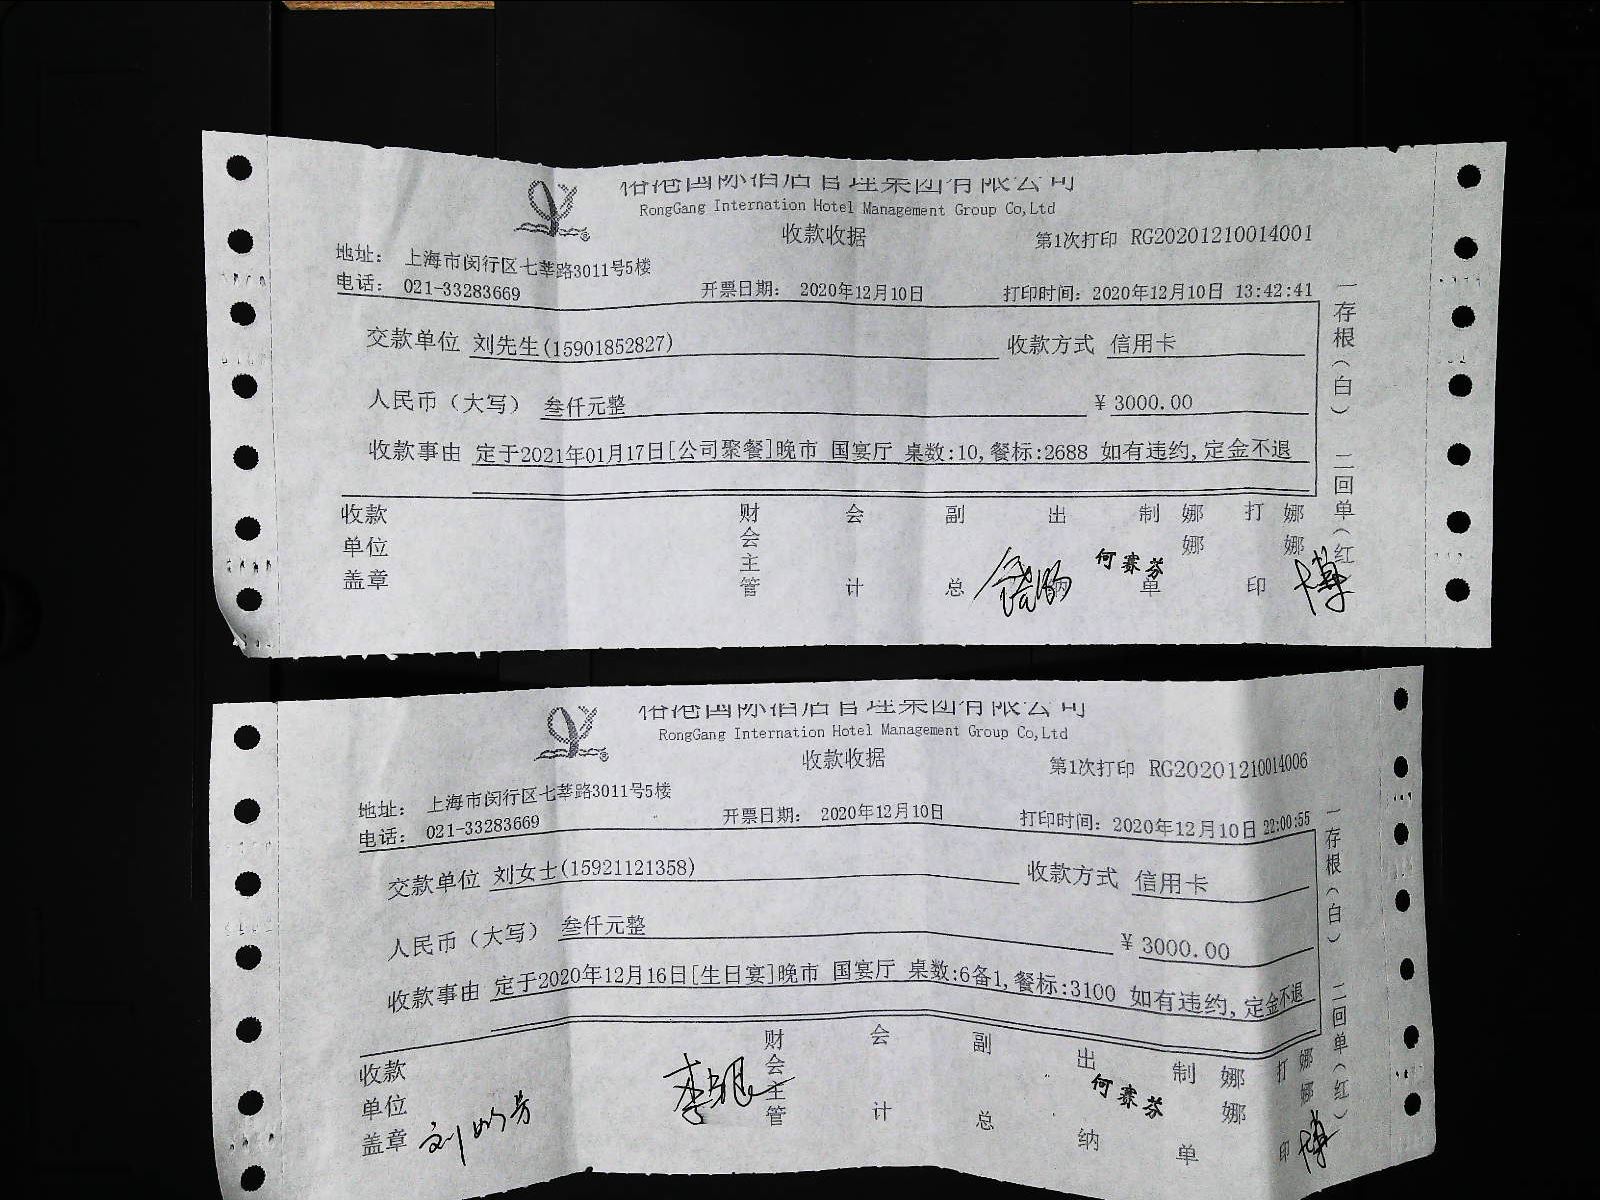 裕港国际酒店管理集团有限公司
RongGang Internation Hotel Management Group Co,Ltd
收款收据
第1次打印 RG20201210014001
地址： 上海市闵行区七莘路3011号5楼
电话： 021-33283669 开票日期： 2020年12月10日 打印时间：2020年12月10日 13:42:41
交款单位 刘先生(15901852827) 收款方式 信用卡
人民币（大写） 叁仟元整 ￥3000.00
收款事由 定于2021年01月17日[公司聚餐]晚市 国宴厅 桌数:10,餐标:2688 如有违约,定金不退
收款单位盖章 财会主管 会计 副总 出纳 何赛芬 制单 娜娜 打印 娜娜
一存根（白） 二回单（红
裕港国际酒店管理集团有限公司
RongGang Internation Hotel Management Group Co,Ltd
收款收据
第1次打印 RG20201210014006
地址： 上海市闵行区七莘路3011号5楼
电话： 021-33283669 开票日期： 2020年12月10日 打印时间：2020年12月10日 22:00:55
交款单位 刘女士(15921121358) 收款方式 信用卡
人民币（大写） 叁仟元整 ￥3000.00
收款事由 定于2020年12月16日[生日宴]晚市 国宴厅 桌数:6备1,餐标:3100 如有违约,定金不退
收款单位盖章 财会主管 会计 副总 出纳 何赛芬 制单 娜娜 打印 娜娜
一存根（白） 二回单（红）